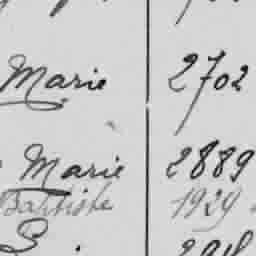 Marie 2702
Marie 2889
Baptiste 1929